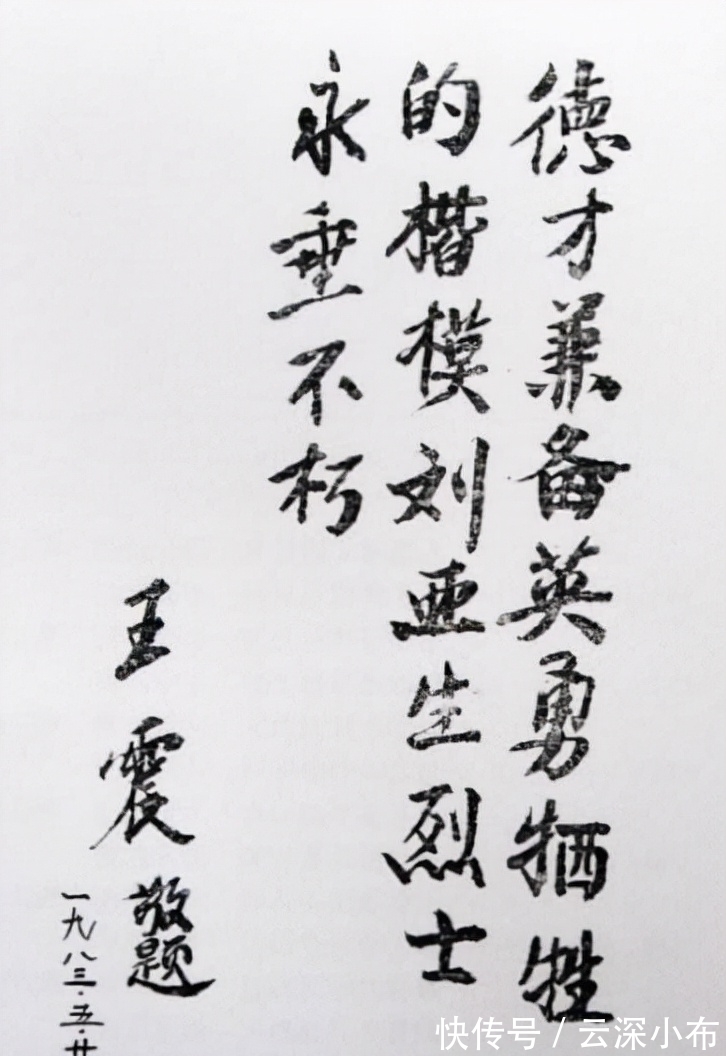 德才兼备英勇牺牲
的楷模刘亚生烈士
永垂不朽
王震敬题
一九八三·五·廿
快传号/云深小布